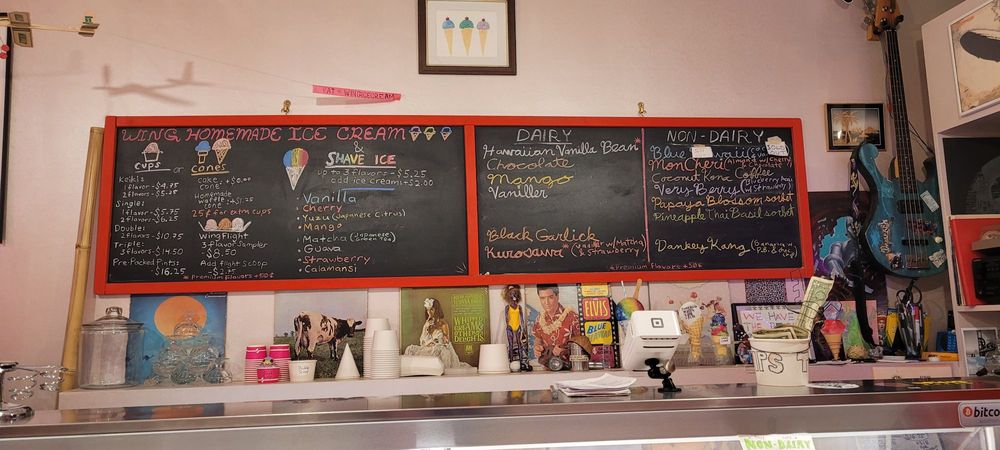 EAT - WINGICECREAM
WING HOMEMADE ICE CREAM
&
SHAVE ICE
CUPS or Cones
Keiki:
1 flavor - $4.75
2 flavors - $5.25
Single:
1 flavor - $5.75
2 flavors - $6.25
Double:
2 flavors - $10.75
Triple:
3 flavors - $14.50
Pre-Packed Pints:
$16.25
* Premium Flavors +50¢
cake, +$0.00
cone
Homemade
waffle
cone +$1.25
25¢ for extra cups
Wing Flight
3 flavor Sampler
- $8.50
Add flight Scoop
- $2.75
up to 3 flavors - $5.25
add ice cream: +$2.00
Vanilla
Cherry
Yuzu (Japanese Citrus)
Mango
Matcha (Japanese Green Tea)
Guava
Strawberry
Calamansi
DAIRY
Hawaiian Vanilla Bean*
Chocolate
Mango
Vaniller
Black Garlick
Kurosawa
& Strawberry)
NON-DAIRY
Blue Hawaii
Mon Cheri
Coconut Kona Coffee
Very Berry
Papaya Blossom sorbet
Pineapple Thai Basil sorbet
Dankey Kang
*Premium Flavors +50¢
WHIPPED
CREAM &
OTHER
DELIGHTS
ELVIS
BLUE
HAWAII
WE HAVE
TIPS
bitco
NON-DAIRY